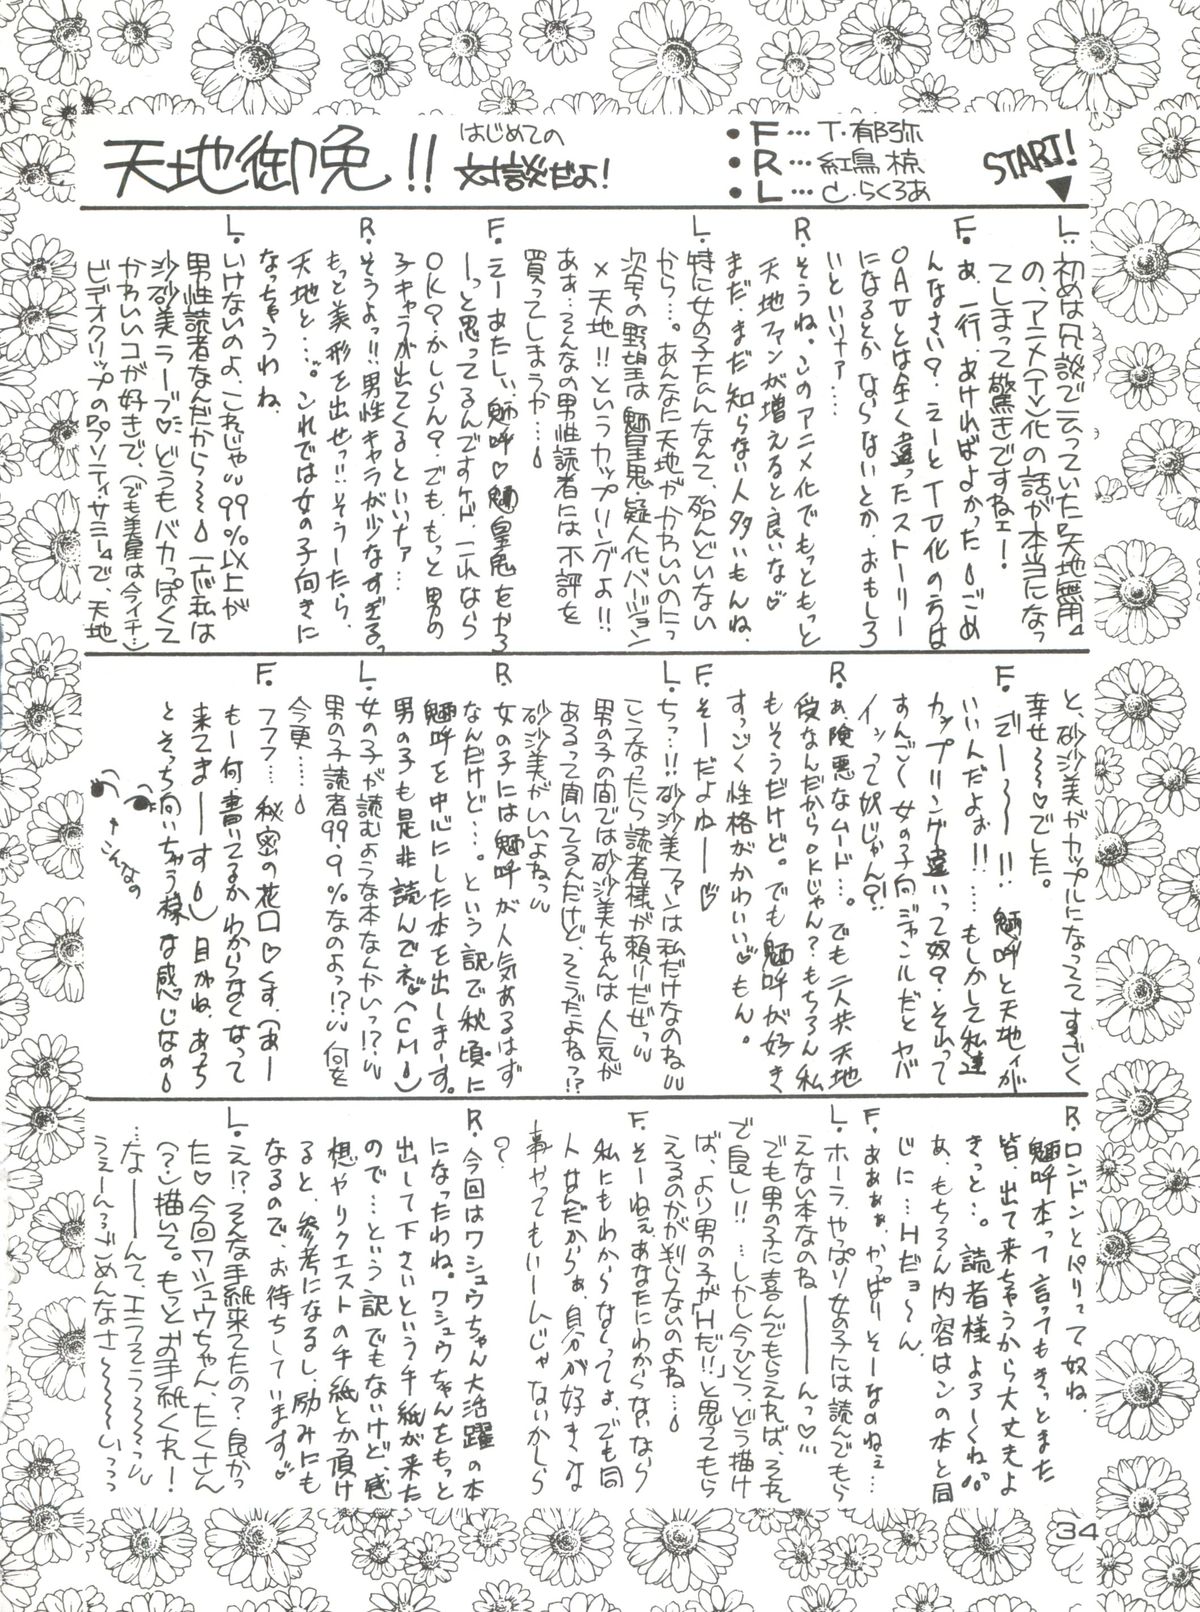 天地御免!!
はじめての
対談だよ!
・F…T・郁弥
・R…紅鳥 椋
・L…と・らくろあ
START!
L:初めは冗談で云っていた『天地無用』
の、アニメ(TV)化の話が本当になっ
てしまって驚きですねェ!
F.あ、一行、あければよかった ごめ
んなさい?えーとTV化の方は
OAVとは全く違ったストーリー
になるとかならないとか。おもしろ
いといいナァ……
R.そうね。このアニメ化でもっともっと
天地ファンが増えると良いな♡
まだまだ知らない人多いもんね、
特に女の子Fanなんて、殆んどいない
から…。あんなに天地がかわいいのにっ
L.次号の野望は魎皇鬼・疑人化バージョン
×天地!!というカップリングよ!!
あぁ…そんなの男性読者には不評を
買ってしまうか…
F.えーあたしぃ、魎呼♡魎皇鬼をやろ
ーっと思ってるんですケド、これなら
OK?かしらん?でももっと男の
子キャラが出てくるといいナァ…
R.そうよっ!!男性キャラが少なすぎるっ
もっと美形を出せっ!!そうしたら、
天地と…。これでは女の子向きに
なっちゃうわね、
L.いけないのよ、これじゃ 99%以上が
男性読者なんだから〜〜 一応私は
沙沙美ラーブ♡どうもバカっぽくて
かわいいコが好きで、(でも美星は今イチ…)
ビデオクリップの『プリティサミー』で、天地
と、砂沙美がカップルになっててすごく
幸せ〜〜♡でした。
F.ゲーー〜ー!!魎呼と天地ィが
いいんだよォ!!……もしかして私達
カップリング違いって奴?そおって
すんご〜く女の子向ジャンルだとヤバ
イッって奴じゃん?!
R.あ、険悪なムード…。でも二人共天地
受なんだからOKじゃん?もちろん私
もそうだけど。でも魎呼が好き
すっごく性格がかわいい♡もん。
F.そーだよねー♡
L.ちっ!!砂沙美ファンは私だけなのね
こうなったら読者様が頼りだぜっ
男の子の間では砂沙美ちゃんは人気が
あるって聞いてるんだけど、そうだよねっ!?
砂沙美がいいよねっ
R.女の子には魎呼が人気あるはず
なんだけど…。という訳で秋頃に
魎呼を中心にした本を出しまーす。
男の子も是非読んでネ♡(CM)
L.女の子が読むような本なんかいっ!?
男の子読者99.9%なのよっ!?何を
今更……
F.フフフ…秘密の花口♡くす、(あー
もー何書いてるかわからなくなって
来てまーーす)目がね、あっち
とそっち向いちゃう様な感じなの
←こんなの
R.ロンドンとパリって奴ね。
魎呼本って言ってもきっとまた
皆、出て来ちゃうから大丈夫よ
きっと…。読者様よろしくね
あ、もちろん内容はこの本と同
じに…Hだョ〜ん
F.あぁぁぁ、かっぱりそーなのねェ…
L.ホーラ、やっぱり女の子には読んでもら
えない本なのねーーーんっ♡
でも男の子に喜んでもらえれば、それ
で良し!!…しかし今ひとつ、どう描け
ば、より男の子が「Hだ!!」と思ってもら
えるのかが判らないのよね…
F.そーねぇあなたにわからないなら
私にもわから〜なくってよ。でも同
人なんだからぁ、自分が好きな
事やってもいーんじゃないかしら
?
R.今回はワシュウちゃん大活躍の本
になったわね。ワシュウちゃんをもっと
出して下さいという手紙が来た
ので…という訳でもないけど、感
想やリクエストの手紙とか頂け
ると、参考になるし、励みにも
なるので、お待ちしています♡
L.え!?そんな手紙来てたの?良かっ
た♡今回ワシュウちゃん、たくさん
(?)描いて。もっとお手紙くれ!
…なーーんて、エラそう〜〜っ
うえーん、ごめんなさ〜〜〜いっっ
34